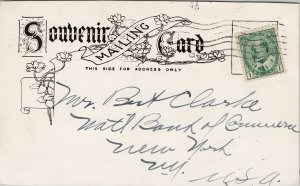 Souvenir
MAILING
Card
THIS SIDE FOR ADDRESS ONLY
Mr. Burt Clarke
Nat'l Bank of Commerce
New York
NY. U.S.A.